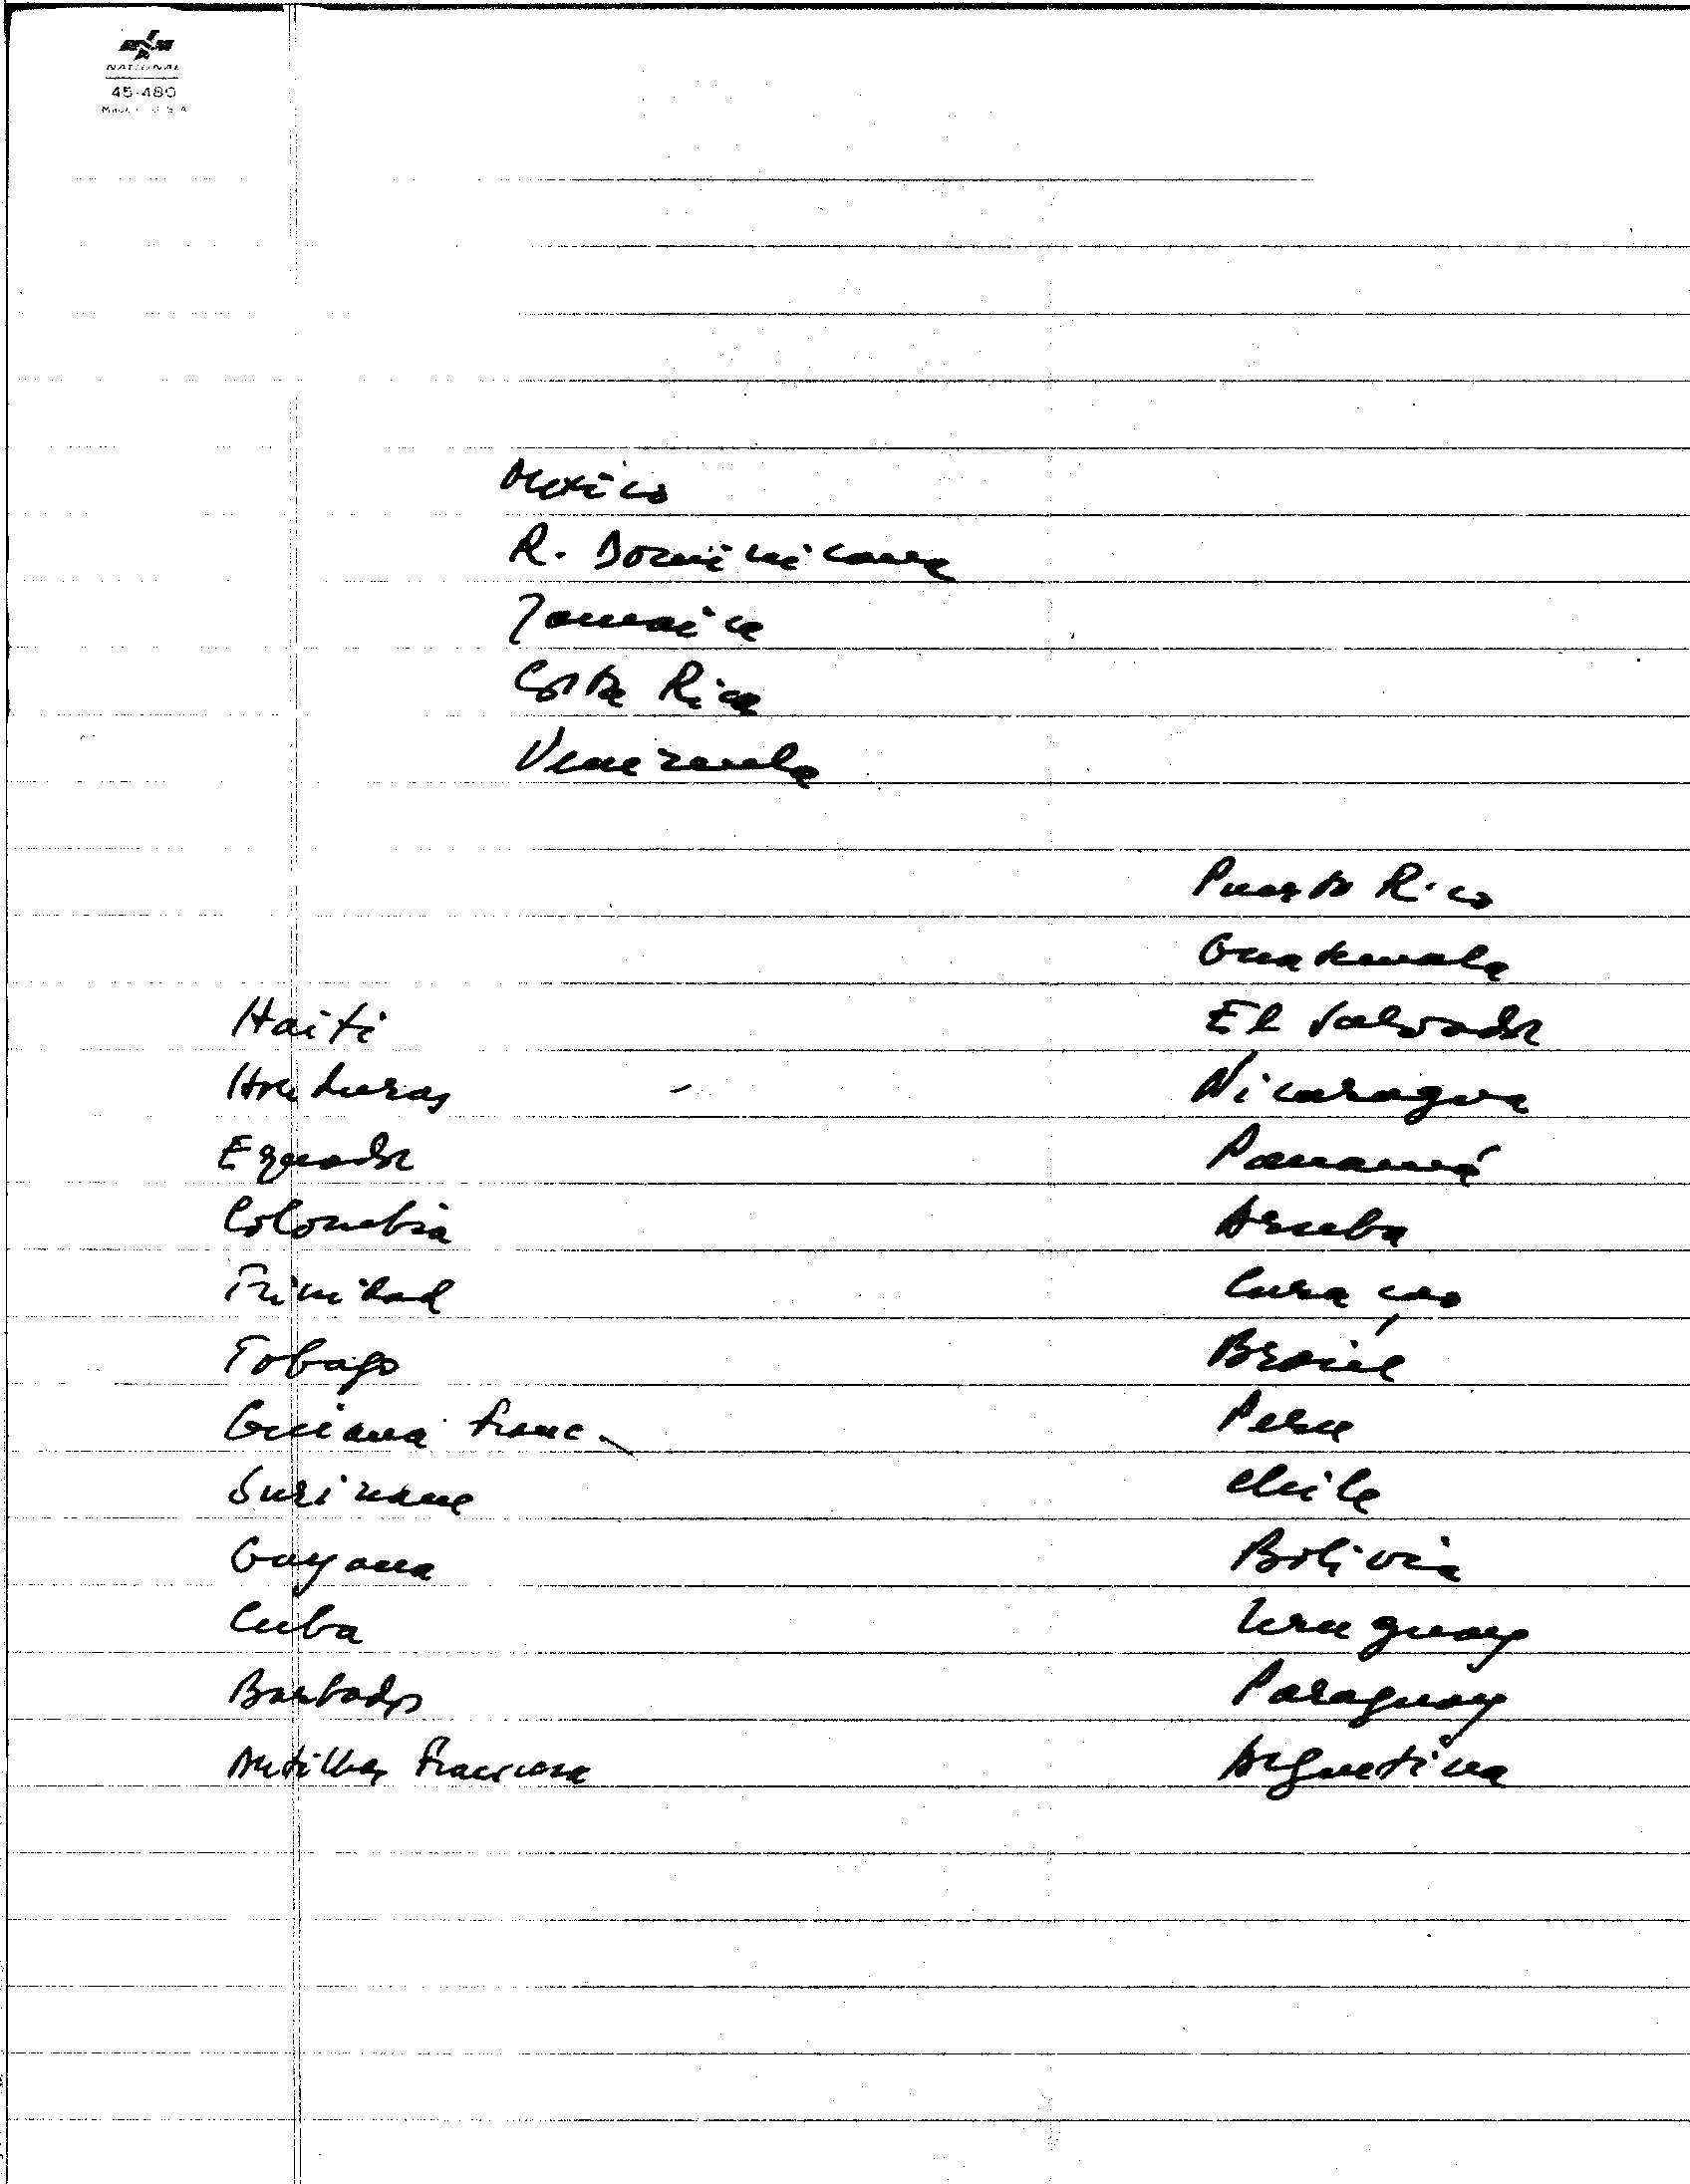 NATIONAL
45-480
Made in U S A
Mexico
R. Dominicana
Jamaica
Costa Rica
Venezuela
Puerto Rico
Guatemala
Haiti
El Salvador
Honduras -
Nicaragua
Equador
Panamá
Colombia
Aruba
Trinidad
Curaçao
Tobago
Brasil
Guiana Franc.
Peru
Suriname
Chile
Guyana
Bolivia
Cuba
Uruguay
Barbados
Paraguay
Antillas Francesa
Argentina